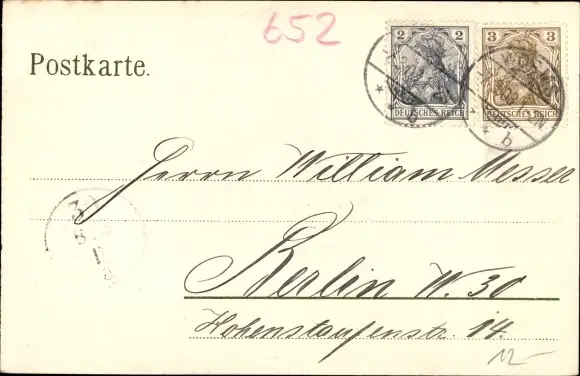 652
2 3
DEUTSCHES REICH DEUTSCHES REICH
WORMS
b
Postkarte.
Herrn William Messer
Berlin W. 30
Hohenstaufenstr. 14.
12.-